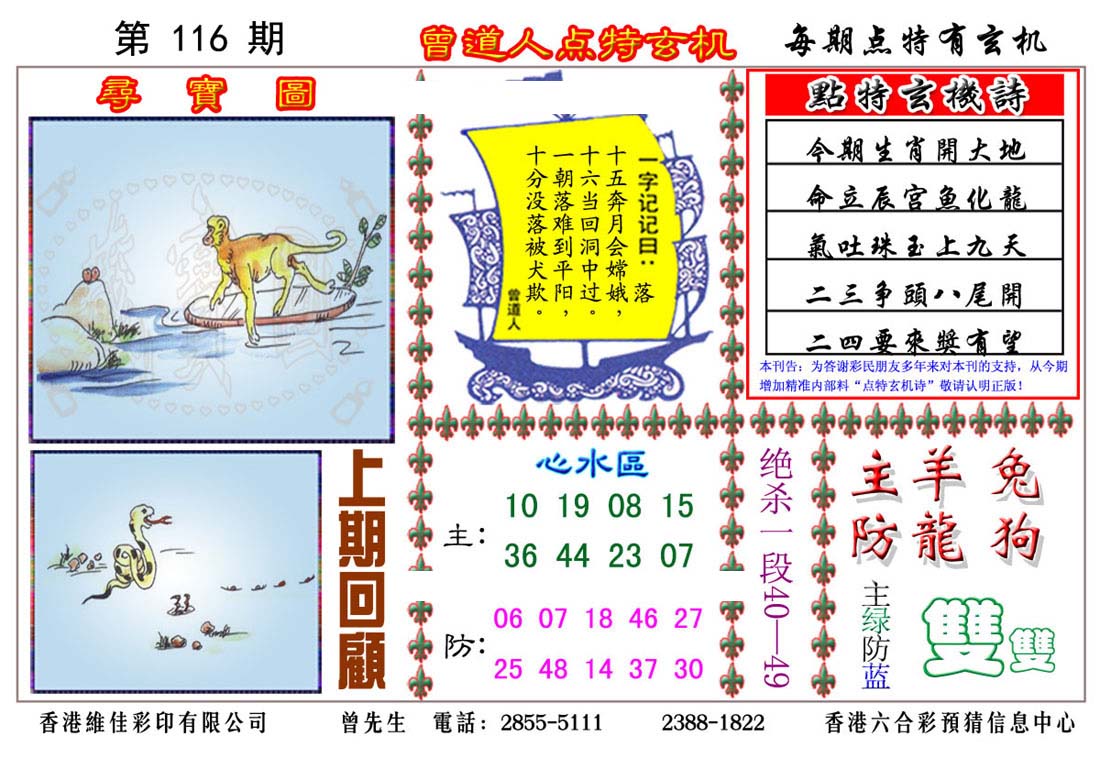 第 116 期
曾道人点特玄机
每期点特有玄机
尋寶圖
一字记记曰：落
十五奔月会嫦娥，
十六当回洞中过。
一朝落难到平阳，
十分没落被犬欺。
曾道人
點特玄機詩
今期生肖開大地
命立辰宫魚化龍
氣吐珠玉上九天
二三争頭八尾開
二四要來獎有望
本刊告：为答谢彩民朋友多年来对本刊的支持，从今期
增加精准内部料“点特玄机诗”敬请认明正版！
上期回顧
心水區
主：
10 19 08 15
36 44 23 07
防：
06 07 18 46 27
25 48 14 37 30
绝杀一段40—49
主羊兔
防龍狗
主绿防蓝
雙雙
香港維佳彩印有限公司
曾先生
電話：2855-5111
2388-1822
香港六合彩預猜信息中心